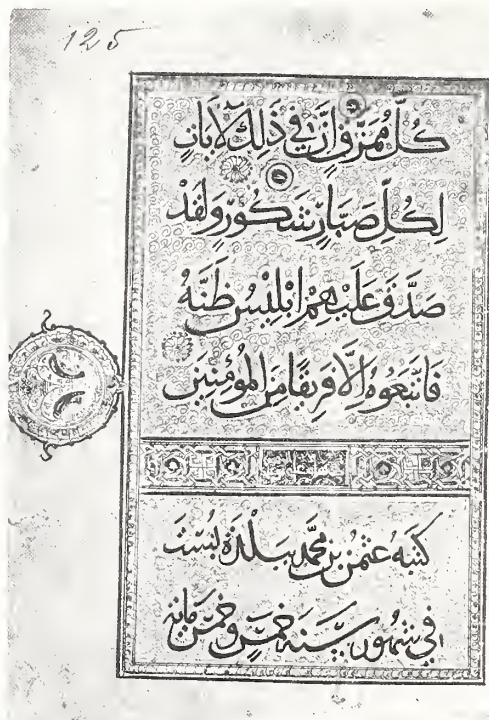 125
كُلَّ مُمَزَّقٍ إِنَّ فِي ذَلِكَ لَآيَاتٍ
لِكُلِّ صَبَّارٍ شَكُورٍ وَلَقَدْ
صَدَّقَ عَلَيْهِمْ إِبْلِيسُ ظَنَّهُ
فَاتَّبَعُوهُ إِلَّا فَرِيقًا مِنَ الْمُؤْمِنِينَ
كتبه عثمن بن محمد ببلدة بست
في شهور سنة خمس وخمس مائة